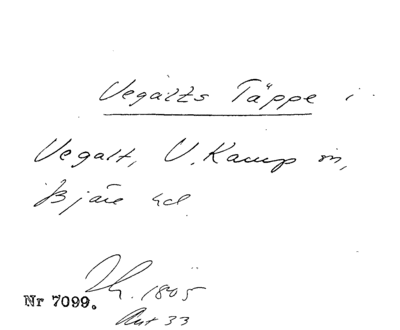 Vegalts Täppe i
Vegalt, V. Karup sn,
Bjäre hd
Nr 7099.
1805
Akt 33